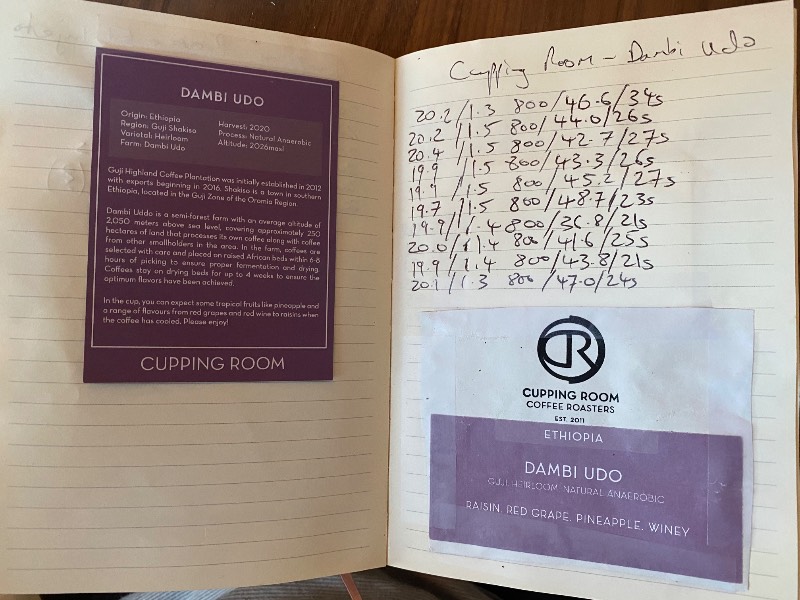 DAMBI UDO
Origin: Ethiopia
Region: Guji Shakiso
Varietal: Heirloom
Farm: Dambi Udo
Harvest: 2020
Process: Natural Anaerobic
Altitude: 2026masl
Guji Highland Coffee Plantation was initially established in 2012
with exports beginning in 2016. Shakiso is a town in southern
Ethiopia, located in the Guji Zone of the Oromia Region.
Dambi Uddo is a semi-forest farm with an average altitude of
2,050 meters above sea level, covering approximately 250
hectares of land that processes its own coffee along with coffee
from other smallholders in the area. In the farm, coffees are
selected with care and placed on raised African beds within 6-8
hours of picking to ensure proper fermentation and drying.
Coffees stay on drying beds for up to 4 weeks to ensure the
optimum flavors have been achieved.
In the cup, you can expect some tropical fruits like pineapple and
a range of flavours from red grapes and red wine to raisins when
the coffee has cooled. Please enjoy!
CUPPING ROOM
Cupping Room - Dambi Udo
20.2 / 1.3 800 / 46.6 / 34s
20.2 / 1.5 800 / 44.0 / 26s
20.4 / 1.5 800 / 42.7 / 27s
19.9 / 1.5 800 / 43.3 / 26s
19.9 / 1.5 800 / 45.2 / 27s
19.7 / 1.5 800 / 48.7 / 23s
19.8 / 1.4 800 / 36.8 / 21s
20.0 / 1.4 800 / 41.6 / 25s
19.9 / 1.4 800 / 43.8 / 21s
20.1 / 1.3 800 / 47.0 / 24s
CR
CUPPING ROOM
COFFEE ROASTERS
EST. 2011
ETHIOPIA
DAMBI UDO
GUJI HEIRLOOM NATURAL ANAEROBIC
RAISIN, RED GRAPE, PINEAPPLE, WINEY